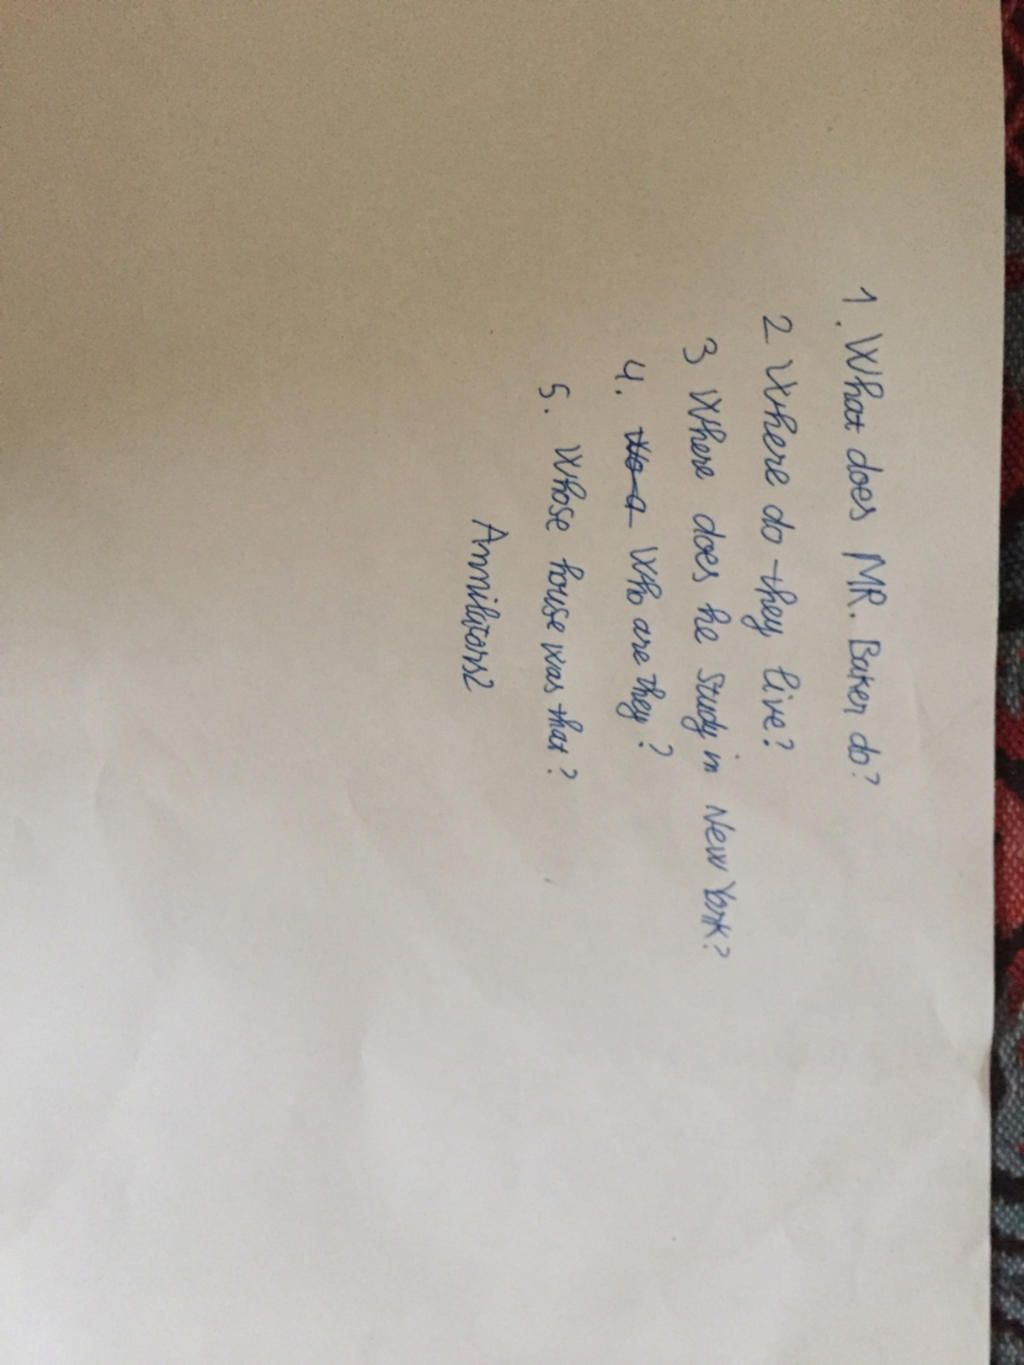 1. What does MR. Baker do?
2 Where do they live?
3 Where does he study in New York?
4. Who are they?
5. Whose house was that?